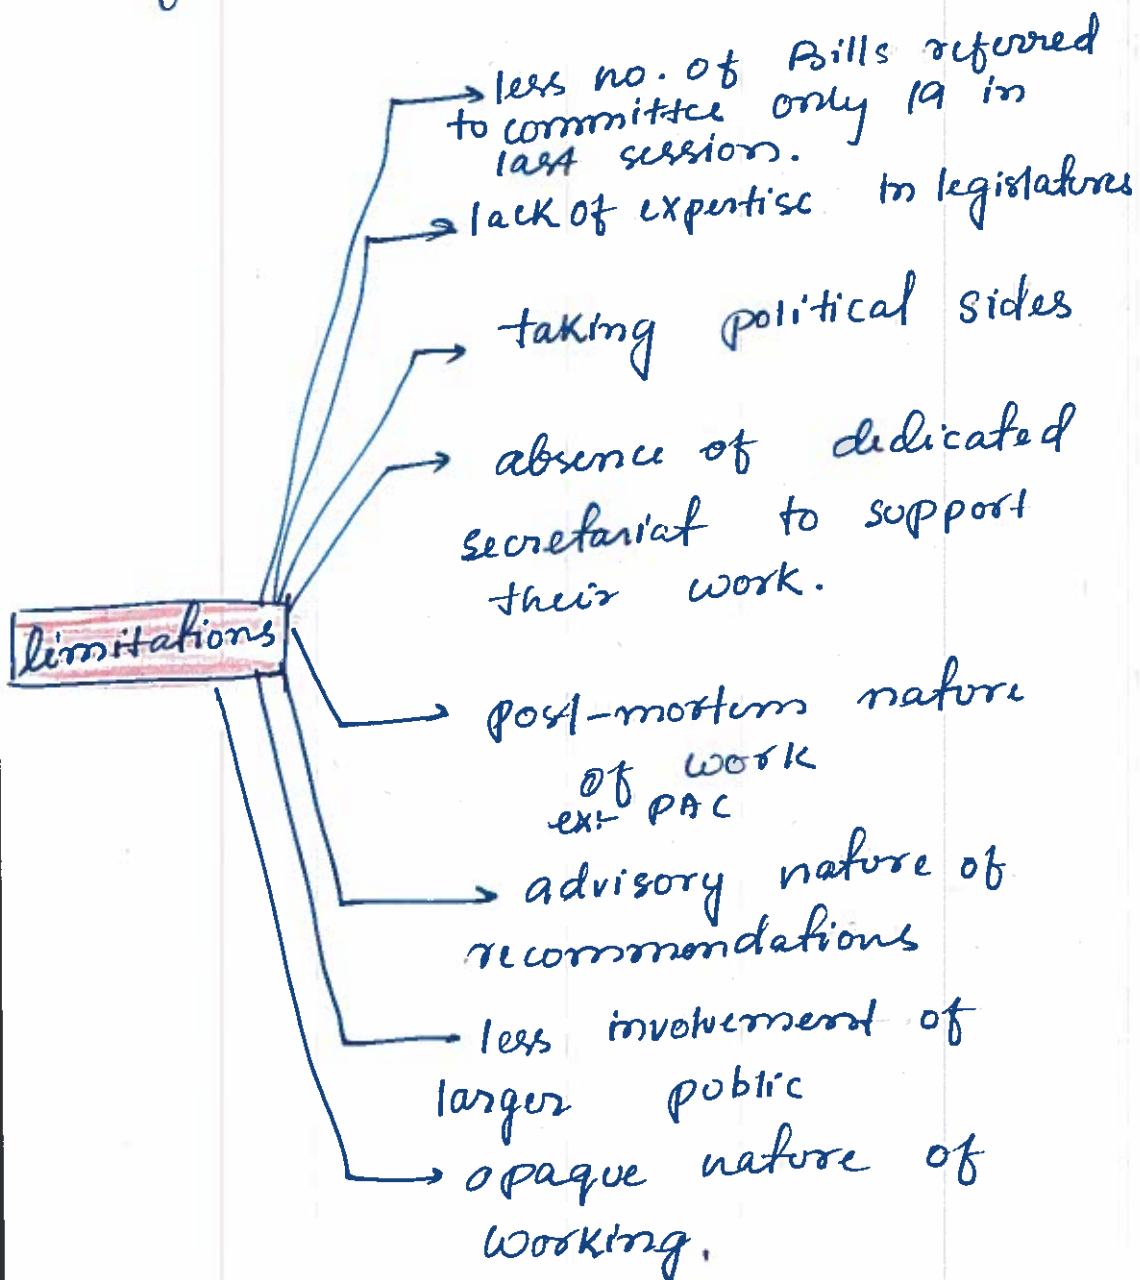 less no. of Bills referred
to committee only 19 in
last session.
lack of expertise in legislatures
taking political sides
absence of dedicated
secretariat to support
their work.
limitations
post-mortem nature
of work
ex:- PAC
advisory nature of
recommendations
less involvement of
larger public
opaque nature of
working.